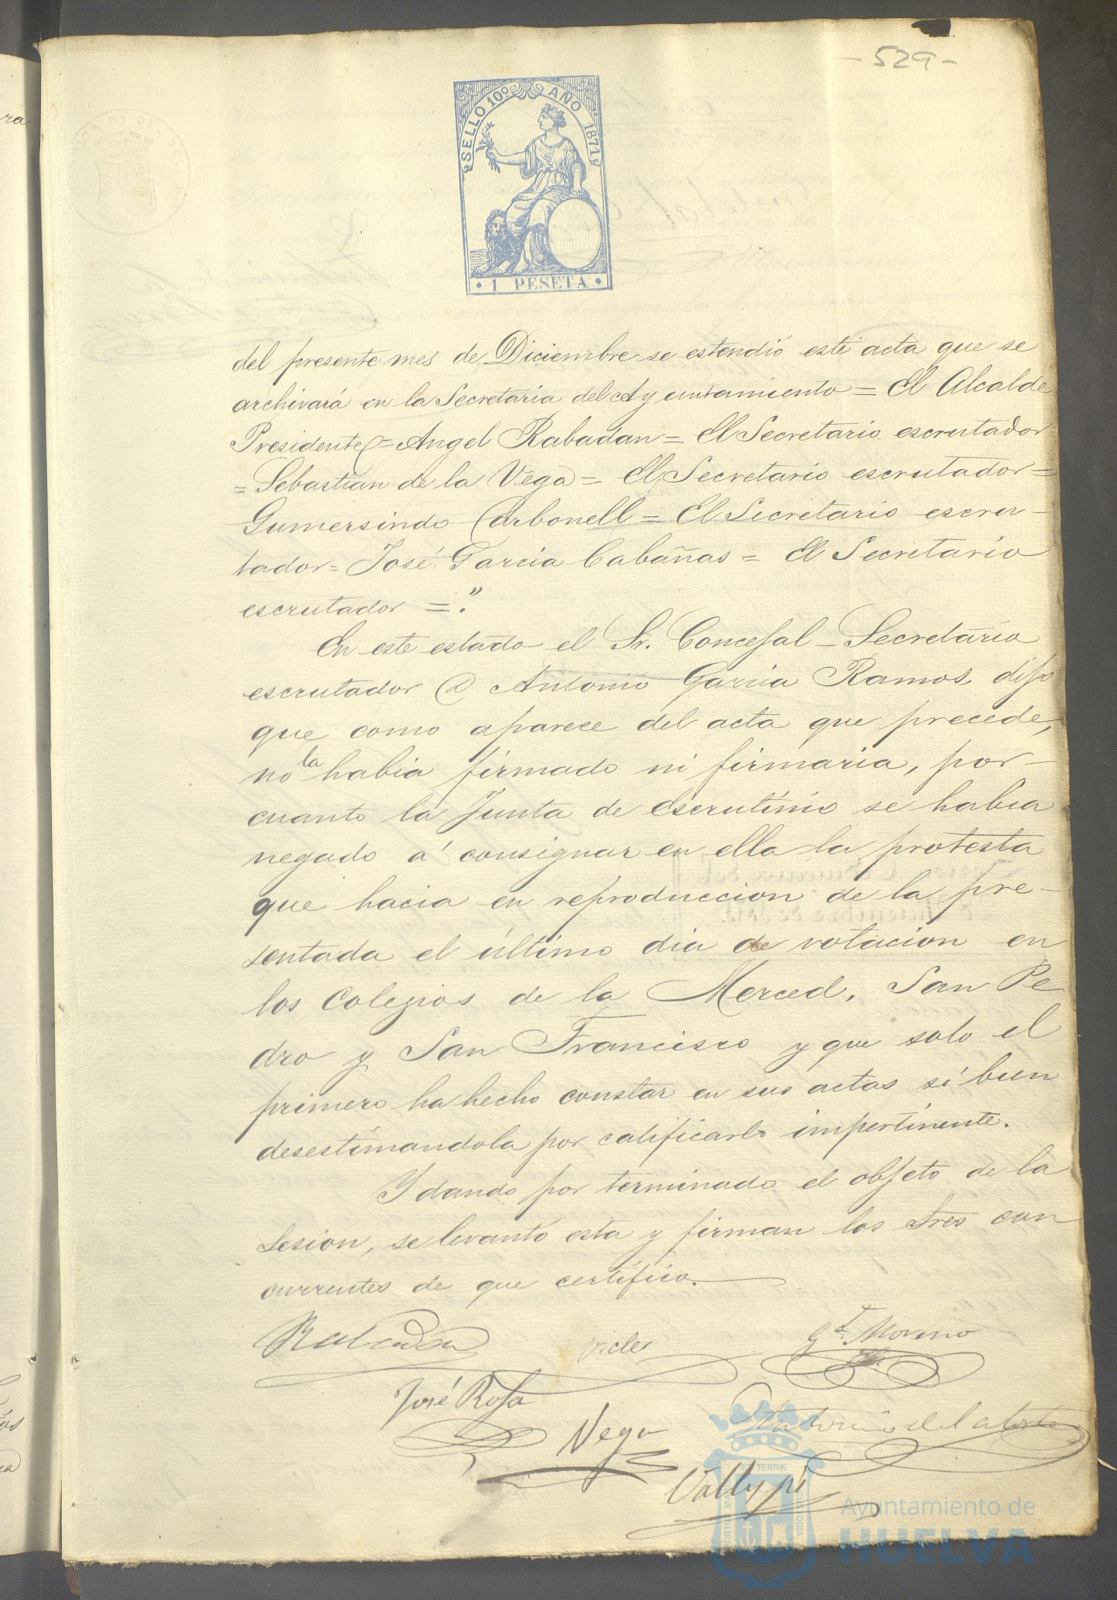 - 529 -
SELLO 10º AÑO 1871
· 1 PESETA ·
del presente mes de Diciembre se estendió este acta que se
archivará en la Secretaría del Ayuntamiento = El Alcalde
Presidente = Angel Rabadan = El Secretario escrutador
= Sebastian de la Vega = El Secretario escrutador =
Gumersindo Carbonell = El Secretario escru-
tador = José Garcia Cabañas = El Secretario
escrutador = ."
En este estado el Sr. Concejal - Secretario
escrutador D Antonio Garcia Ramos, dijo
que como aparece del acta que precede,
no la habia firmado ni firmaria, por-
cuanto la Junta de Escrutinio se habia
negado á consignar en ella la protesta
que hacia en reproduccion de la pre-
sentada el último dia de votacion en
los Colegios de la Merced, San Pe
dro y San Francisco y que solo el
primero ha hecho constar en sus actas si bien
desestimandola por calificarla impertinente.
Y dando por terminado el objeto de la
sesion, se levantó esta y firman los Sres con
currentes de que certifico.
Rabadan
Gª Moreno
José Rosa
Vega
Ayuntamiento de
HUELVA